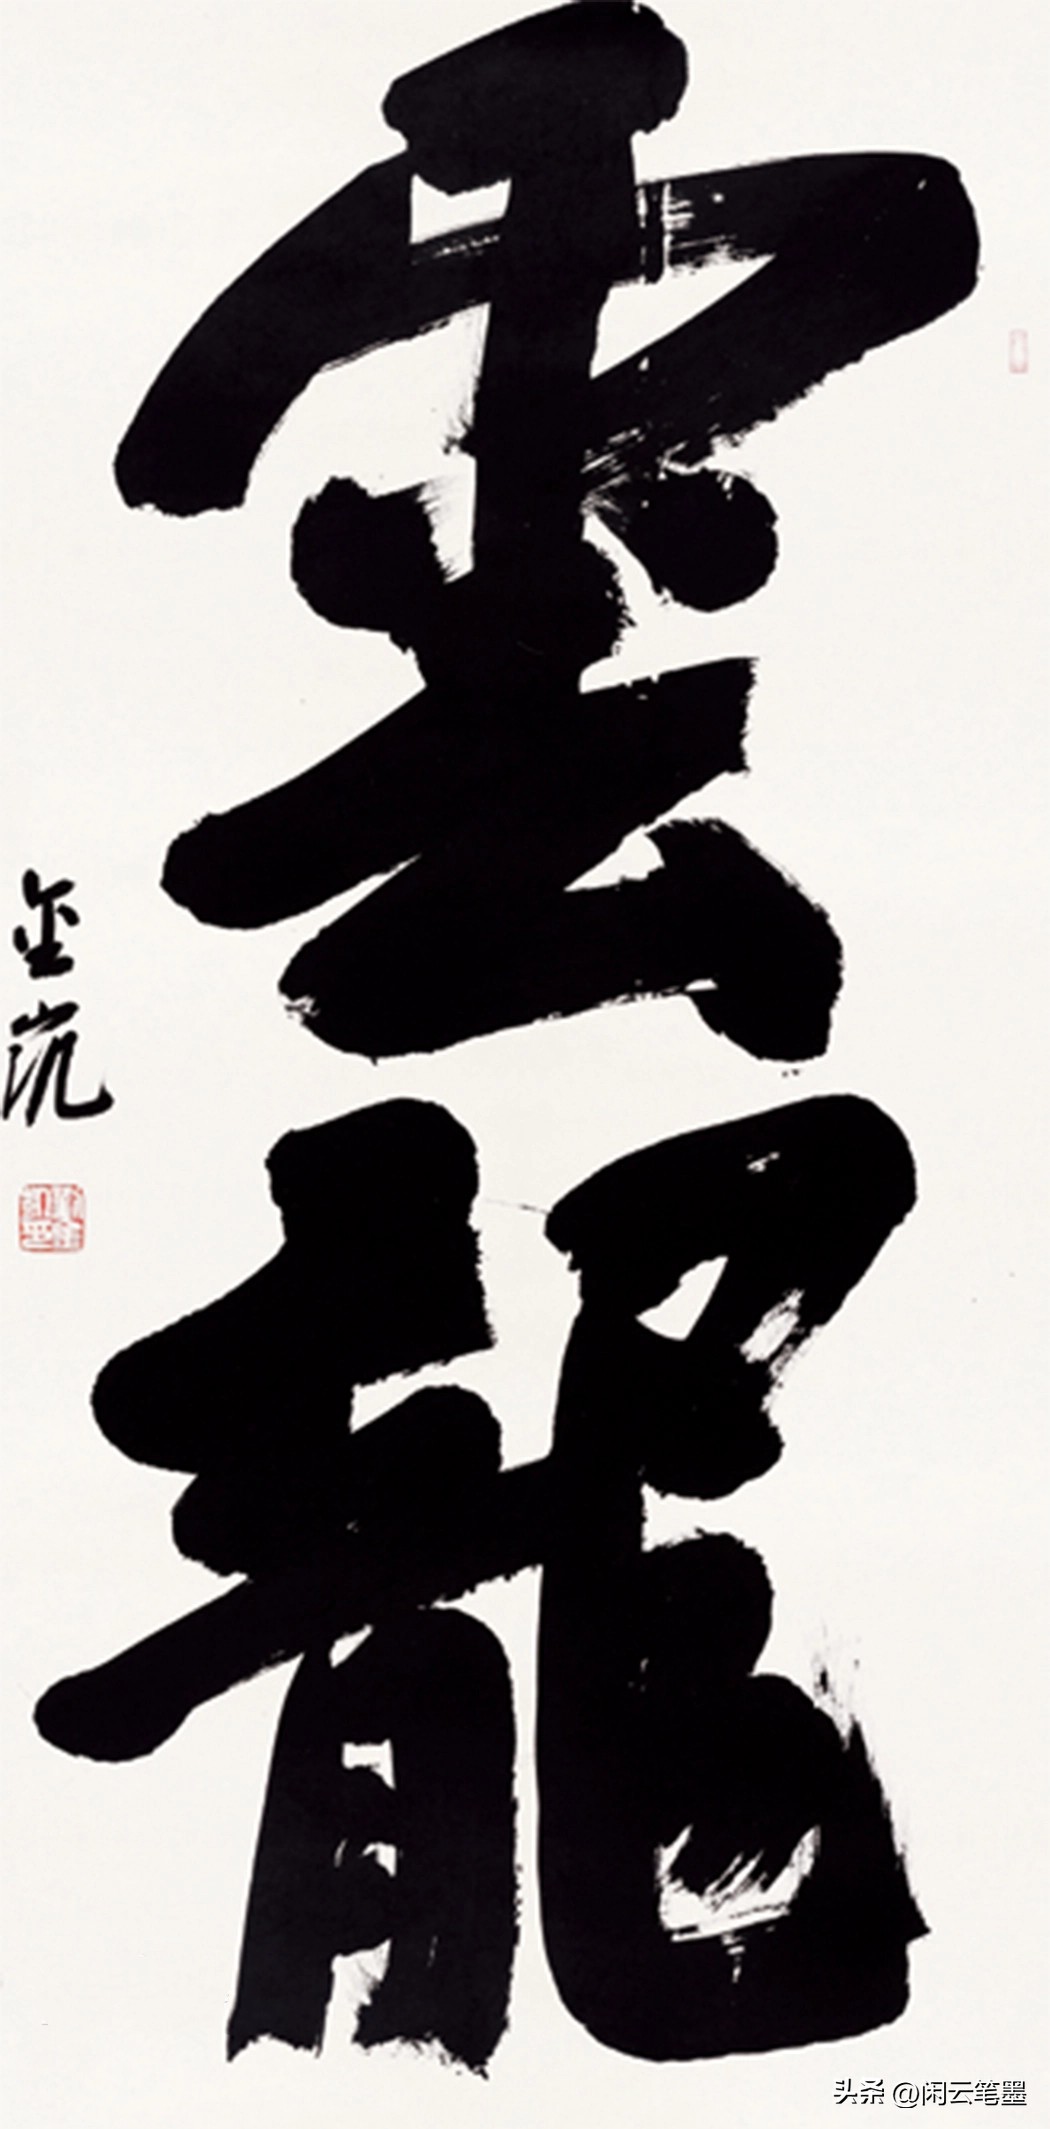 雲龍
金凱
头条 @闲云笔墨